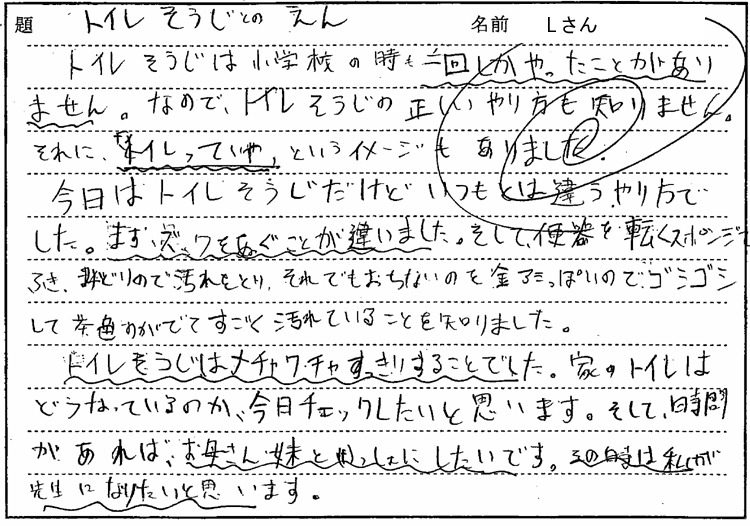 題 トイレそうじとのえん 名前 Lさん
トイレそうじは小学校の時も二回しかやったことがあり
ません。なので、トイレそうじの正しいやり方も知りません。
それに、トイレっていや、というイメージもありました。
今日はトイレそうじだけどいつもとは違うやり方で
した。まず、ズックをぬぐことが違いました。そして、便器を軽くスポンジで
ふき、みどりので汚れをとり、それでもおちないのを金アミっぽいのでゴシゴシ
して茶色わがでてすごく汚れていることを知りました。
トイレそうじはメチャクチャすっきりすることでした。家のトイレは
どうなっているのか、今日チェックしたいと思います。そして、時間
があれば、お母さん、妹といっしょにしたいです。その時は私が
先生になりたいと思います。